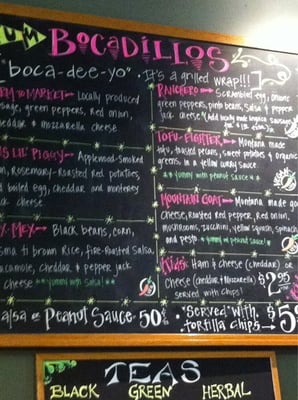 YUM BOCADILLOS
"boca-dee-yo" • It's a grilled wrap!!!
TO MARKET → Locally produced
sausage, green peppers, red onion,
cheddar & mozzarella
cheese
LIL' PIGGY → Applewood-smoked
Rosemary-Roasted Red potatoes,
boiled egg, cheddar, and monterey
jack cheese
-MEX → Black beans, corn,
Brown Rice, fire-Roasted Salsa
guacamole, cheddar & pepper jack
cheese * yummy with salsa! *
RANCHERO → Scrambled egg, onions
green peppers, pinto beans, Salsa & pepper
jack cheese
TOFU-FIGHTER → Montana made
tofu, toasted pecans, sweet potatoes & organic
greens, in a yellow curry sauce
* yummy with peanut sauce *
MOUNTAIN GOAT → Montana made goat
cheese, Roasted Red pepper, Red onion,
mushrooms, zucchini, yellow squash, spinach
and pesto * yummy w/ peanut sauce! *
Kids: Ham & cheese (cheddar) or
cheese (cheddar & mozzarella) $2.95
served with chips!
Salsa or Peanut Sauce 50¢
• "Served" with tortilla chips → $5
TEAS
BLACK GREEN HERBAL